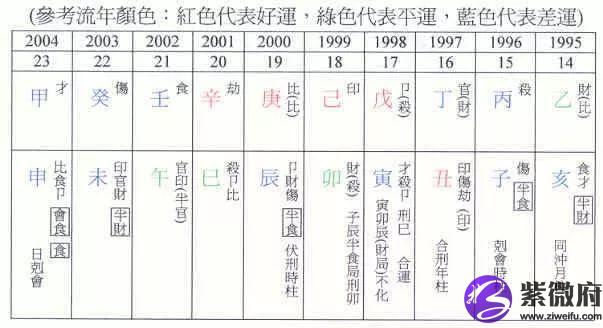 (參考流年顏色：紅色代表好運，綠色代表平運，藍色代表差運)
2004 2003 2002 2001 2000 1999 1998 1997 1996 1995
23 22 21 20 19 18 17 16 15 14
甲 才 癸 傷 壬 食 辛 劫 庚 比(比) 己 印 戊 卩(殺) 丁 官(財) 丙 殺 乙 財(比)
申 比食卩 會食 食 日剋會
未 印官財 半財
午 官印(半官)
巳 殺卩比
辰 卩財傷 半食 伏刑時柱
卯 財(殺) 子辰半食局刑卯
寅 才殺卩 刑巳 合運 寅卯辰(財局)不化
丑 印傷劫(印) 合刑年柱
子 傷 半食 剋會時
亥 食才 半財 同沖月
紫微府
www.ziweifu.com